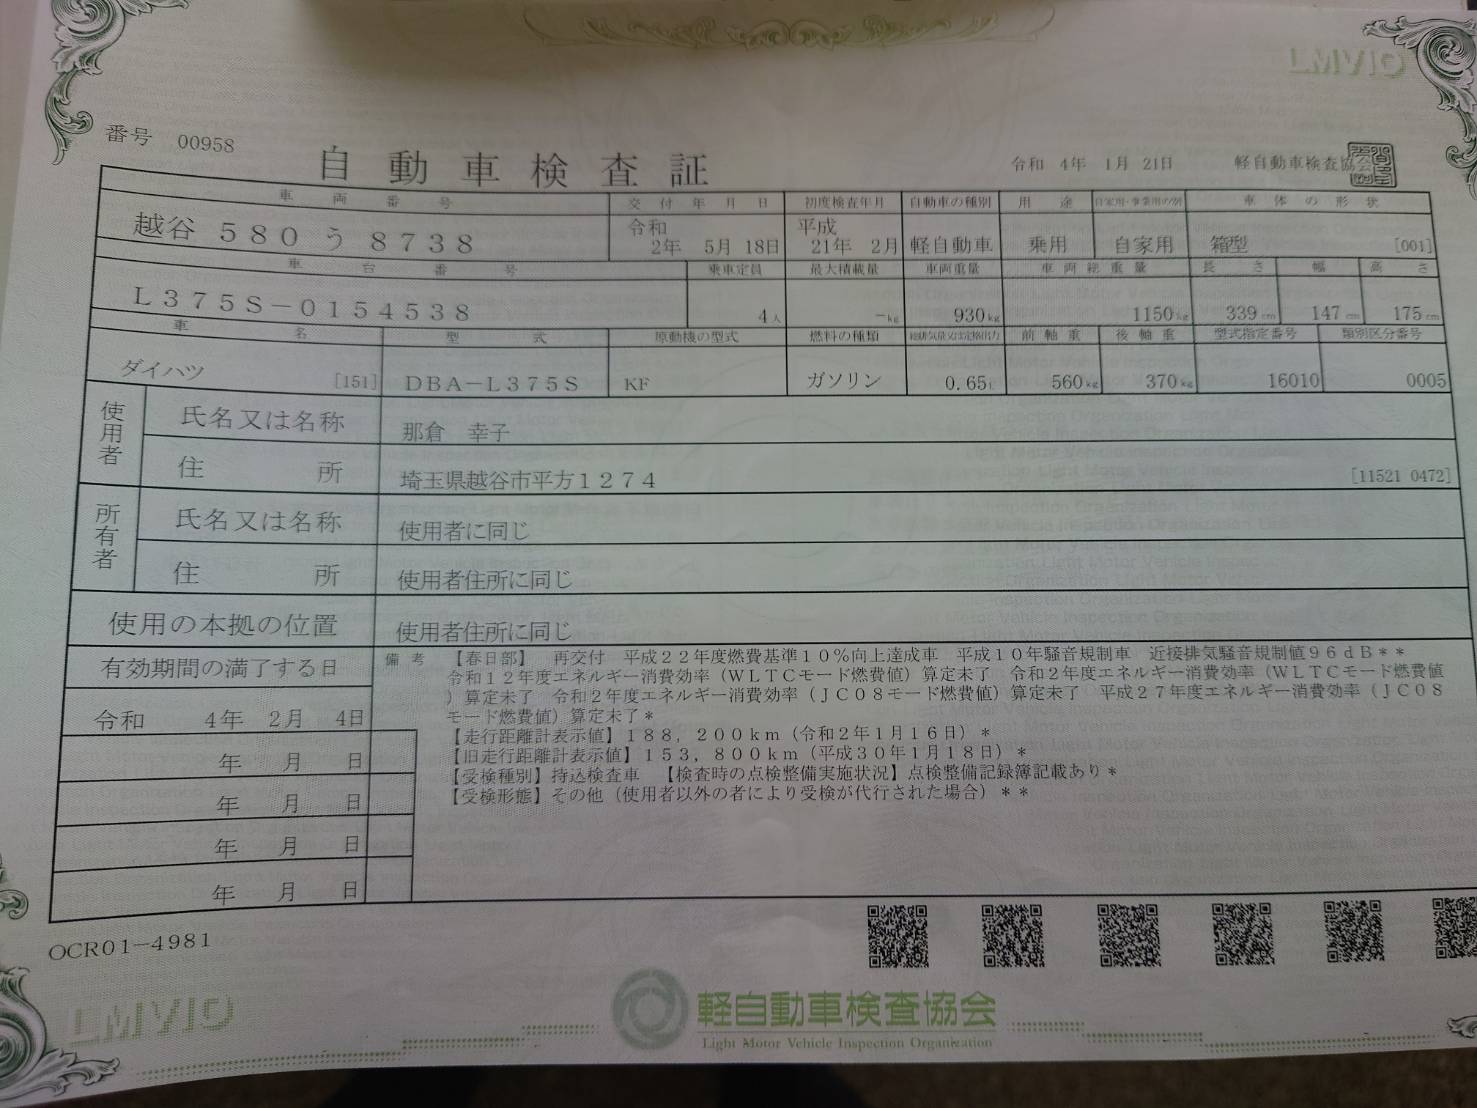 LMVIO
番号 00958
自動車検査証
令和 4年 1月 21日 軽自動車検査協会
車両番号 交付年月日 初度検査年月 自動車の種別 用途 自家用・事業用の別 車体の形状
越谷 580 う 8738 令和 2年 5月 18日 平成 21年 2月 軽自動車 乗用 自家用 箱型 [001]
車台番号 乗車定員 最大積載量 車両重量 車両総重量 長さ 幅 高さ
L375S-0154538 4人 -kg 930kg 1150kg 339cm 147cm 175cm
車名 型式 原動機の型式 燃料の種類 総排気量又は定格出力 前軸重 後軸重 型式指定番号 類別区分番号
ダイハツ [151] DBA-L375S KF ガソリン 0.65L 560kg 370kg 16010 0005
使用者
氏名又は名称 那倉 幸子
住所 埼玉県越谷市平方1274 [11521 0472]
所有者
氏名又は名称 使用者に同じ
住所 使用者住所に同じ
使用の本拠の位置 使用者住所に同じ
有効期間の満了する日
令和 4年 2月 4日
年 月 日
年 月 日
年 月 日
年 月 日
備考
【春日部】 再交付 平成22年度燃費基準10%向上達成車 平成10年騒音規制車 近接排気騒音規制値96dB**
令和12年度エネルギー消費効率(WLTCモード燃費値)算定未了 令和2年度エネルギー消費効率(WLTCモード燃費値
)算定未了 令和2年度エネルギー消費効率(JC08モード燃費値)算定未了 平成27年度エネルギー消費効率(JC08
モード燃費値)算定未了*
【走行距離計表示値】188,200km(令和2年1月16日)*
【旧走行距離計表示値】153,800km(平成30年1月18日)*
【受検種別】持込検査車 【検査時の点検整備実施状況】点検整備記録簿記載あり*
【受検形態】その他(使用者以外の者により受検が代行された場合)**
OCR01-4981
LMVIO
軽自動車検査協会
Light Motor Vehicle Inspection Organization